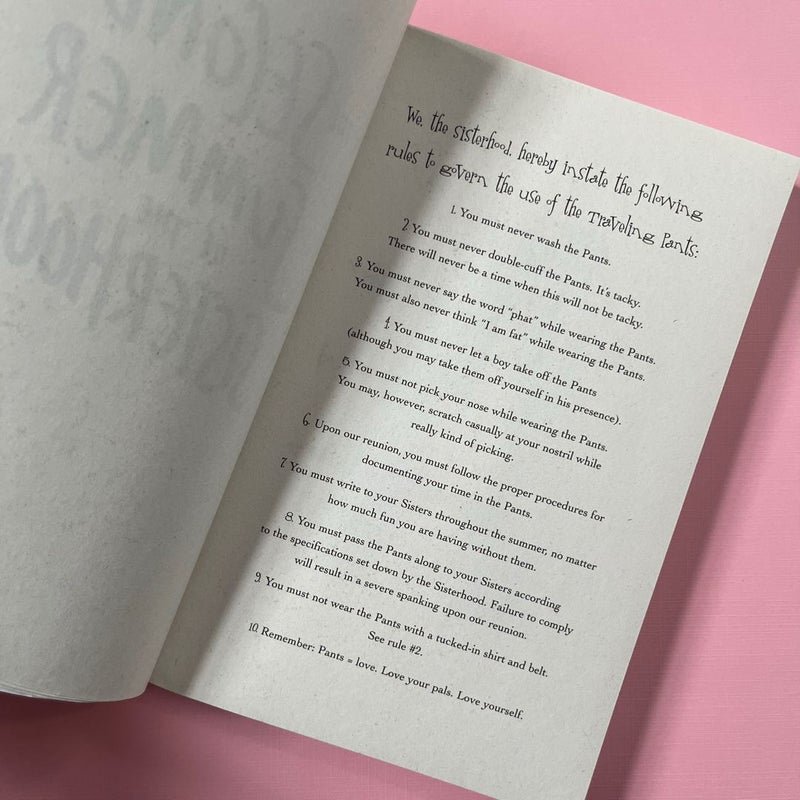 We, the sisterhood, hereby instate the following
rules to govern the use of the Traveling Pants:
1. You must never wash the Pants.
2. You must never double-cuff the Pants. It's tacky.
There will never be a time when this will not be tacky.
3. You must never say the word "phat" while wearing the Pants.
You must also never think "I am fat" while wearing the Pants.
4. You must never let a boy take off the Pants
(although you may take them off yourself in his presence).
5. You must not pick your nose while wearing the Pants.
You may, however, scratch casually at your nostril while
really kind of picking.
6. Upon our reunion, you must follow the proper procedures for
documenting your time in the Pants.
7. You must write to your Sisters throughout the summer, no matter
how much fun you are having without them.
8. You must pass the Pants along to your Sisters according
to the specifications set down by the Sisterhood. Failure to comply
will result in a severe spanking upon our reunion.
9. You must not wear the Pants with a tucked-in shirt and belt.
See rule #2.
10. Remember: Pants = love. Love your pals. Love yourself.